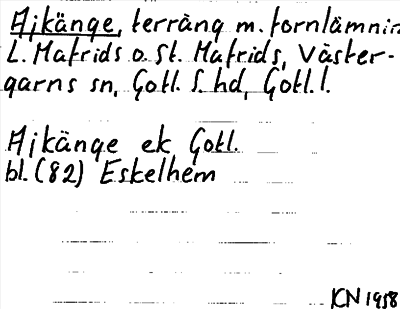 Ajkänge, terräng m. fornlämnin
L. Mafrids o. St. Mafrids, Väster-
garns sn, Gotl. S. hd, Gotl. l.
Ajkänge ek Gotl.
bl. (82) Eskelhem
KN 1958